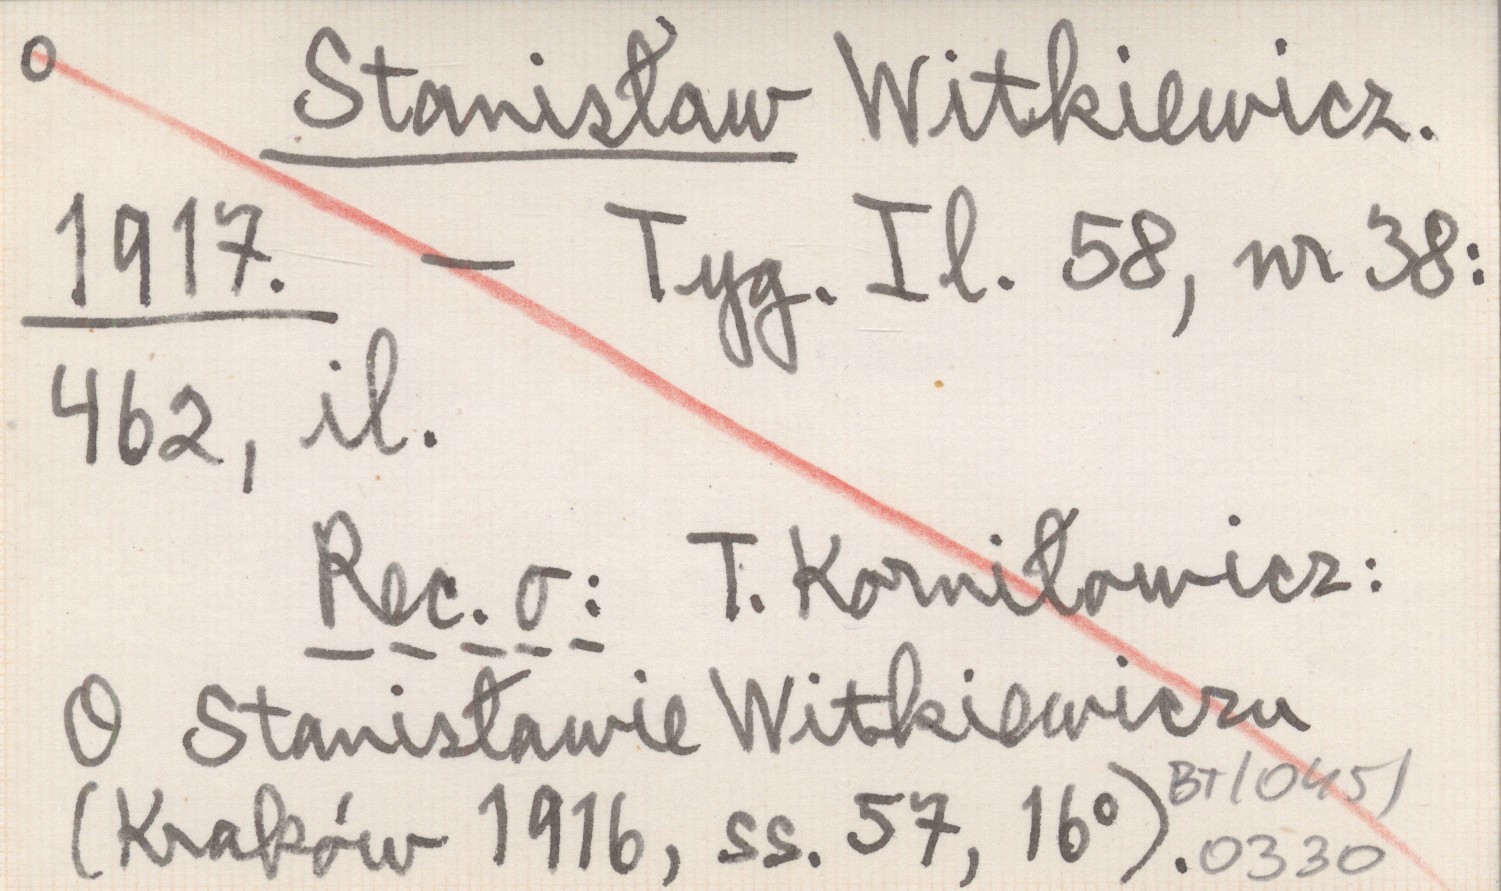 o
Stanisław Witkiewicz.
1917. — Tyg. Il. 58, nr 38:
462, il.
Rec. o: T. Korniłowicz:
O Stanisławie Witkiewiczu
(Kraków 1916, ss. 57, 16°).
BT/045/
0330